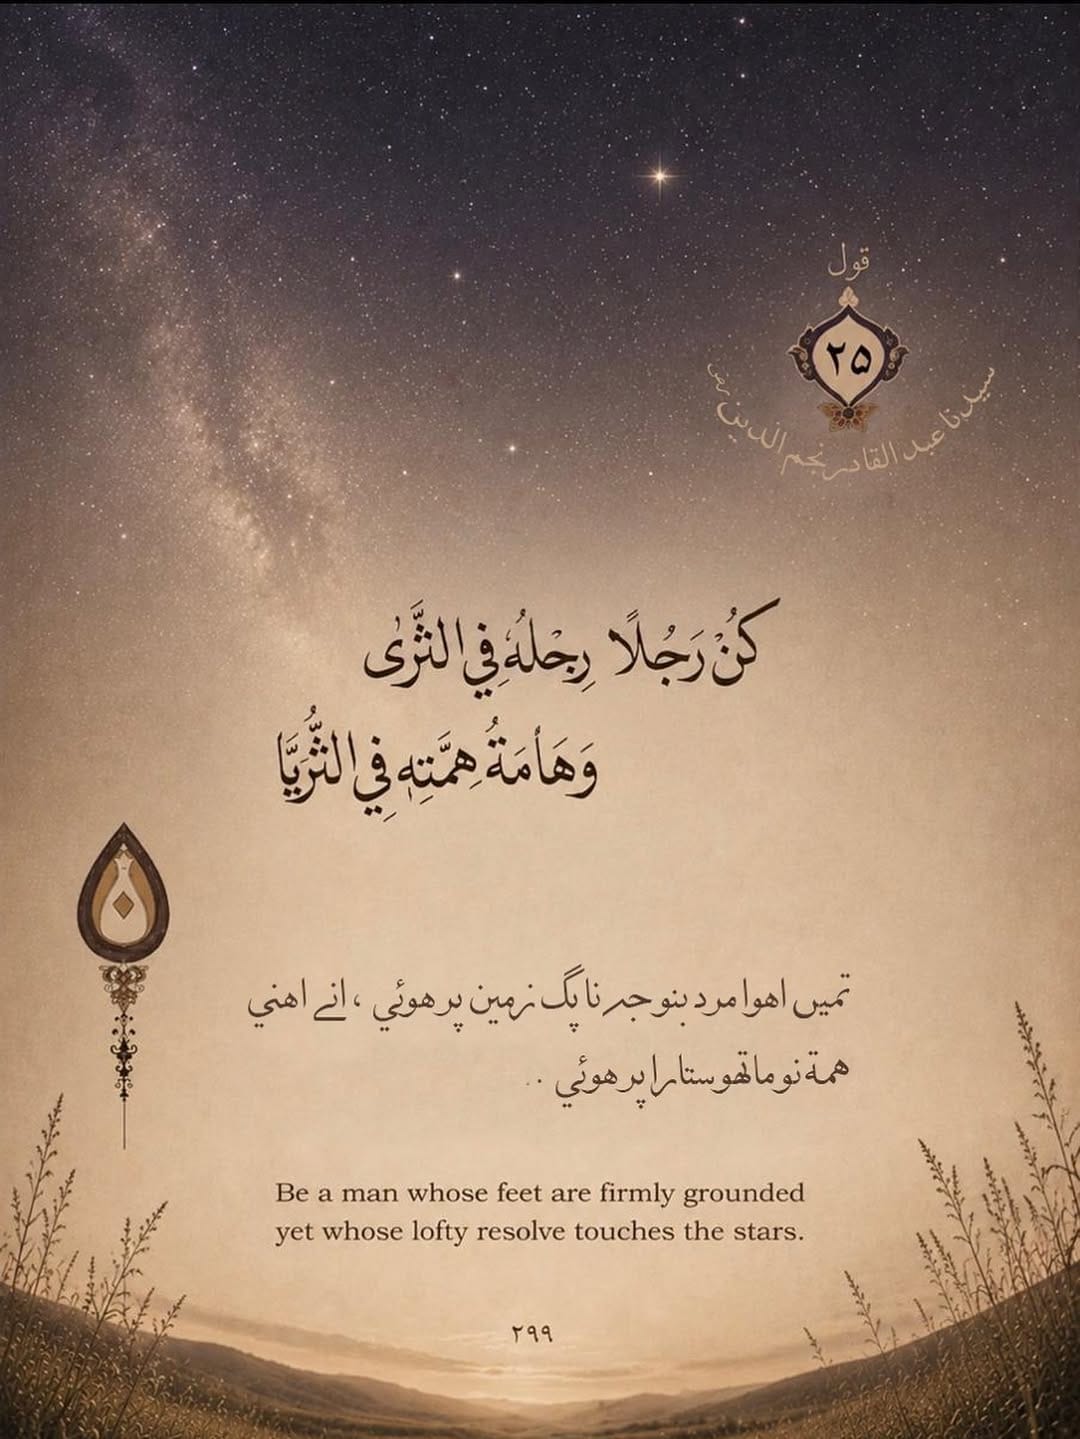 قول
٢٥
سيدنا عبد القادر نجم الدين رض
كُنْ رَجُلًا رِجْلُهُ فِي الثَّرٰى
وَهَامَةُ هِمَّتِهِ فِي الثُّرَيَّا
تميں اهوا مرد بنو جہ نا پگ زمين پر هوئي ، انے اهني
همة نو ماتھو ستارا پر هوئي ..
Be a man whose feet are firmly grounded
yet whose lofty resolve touches the stars.
٢٩٩